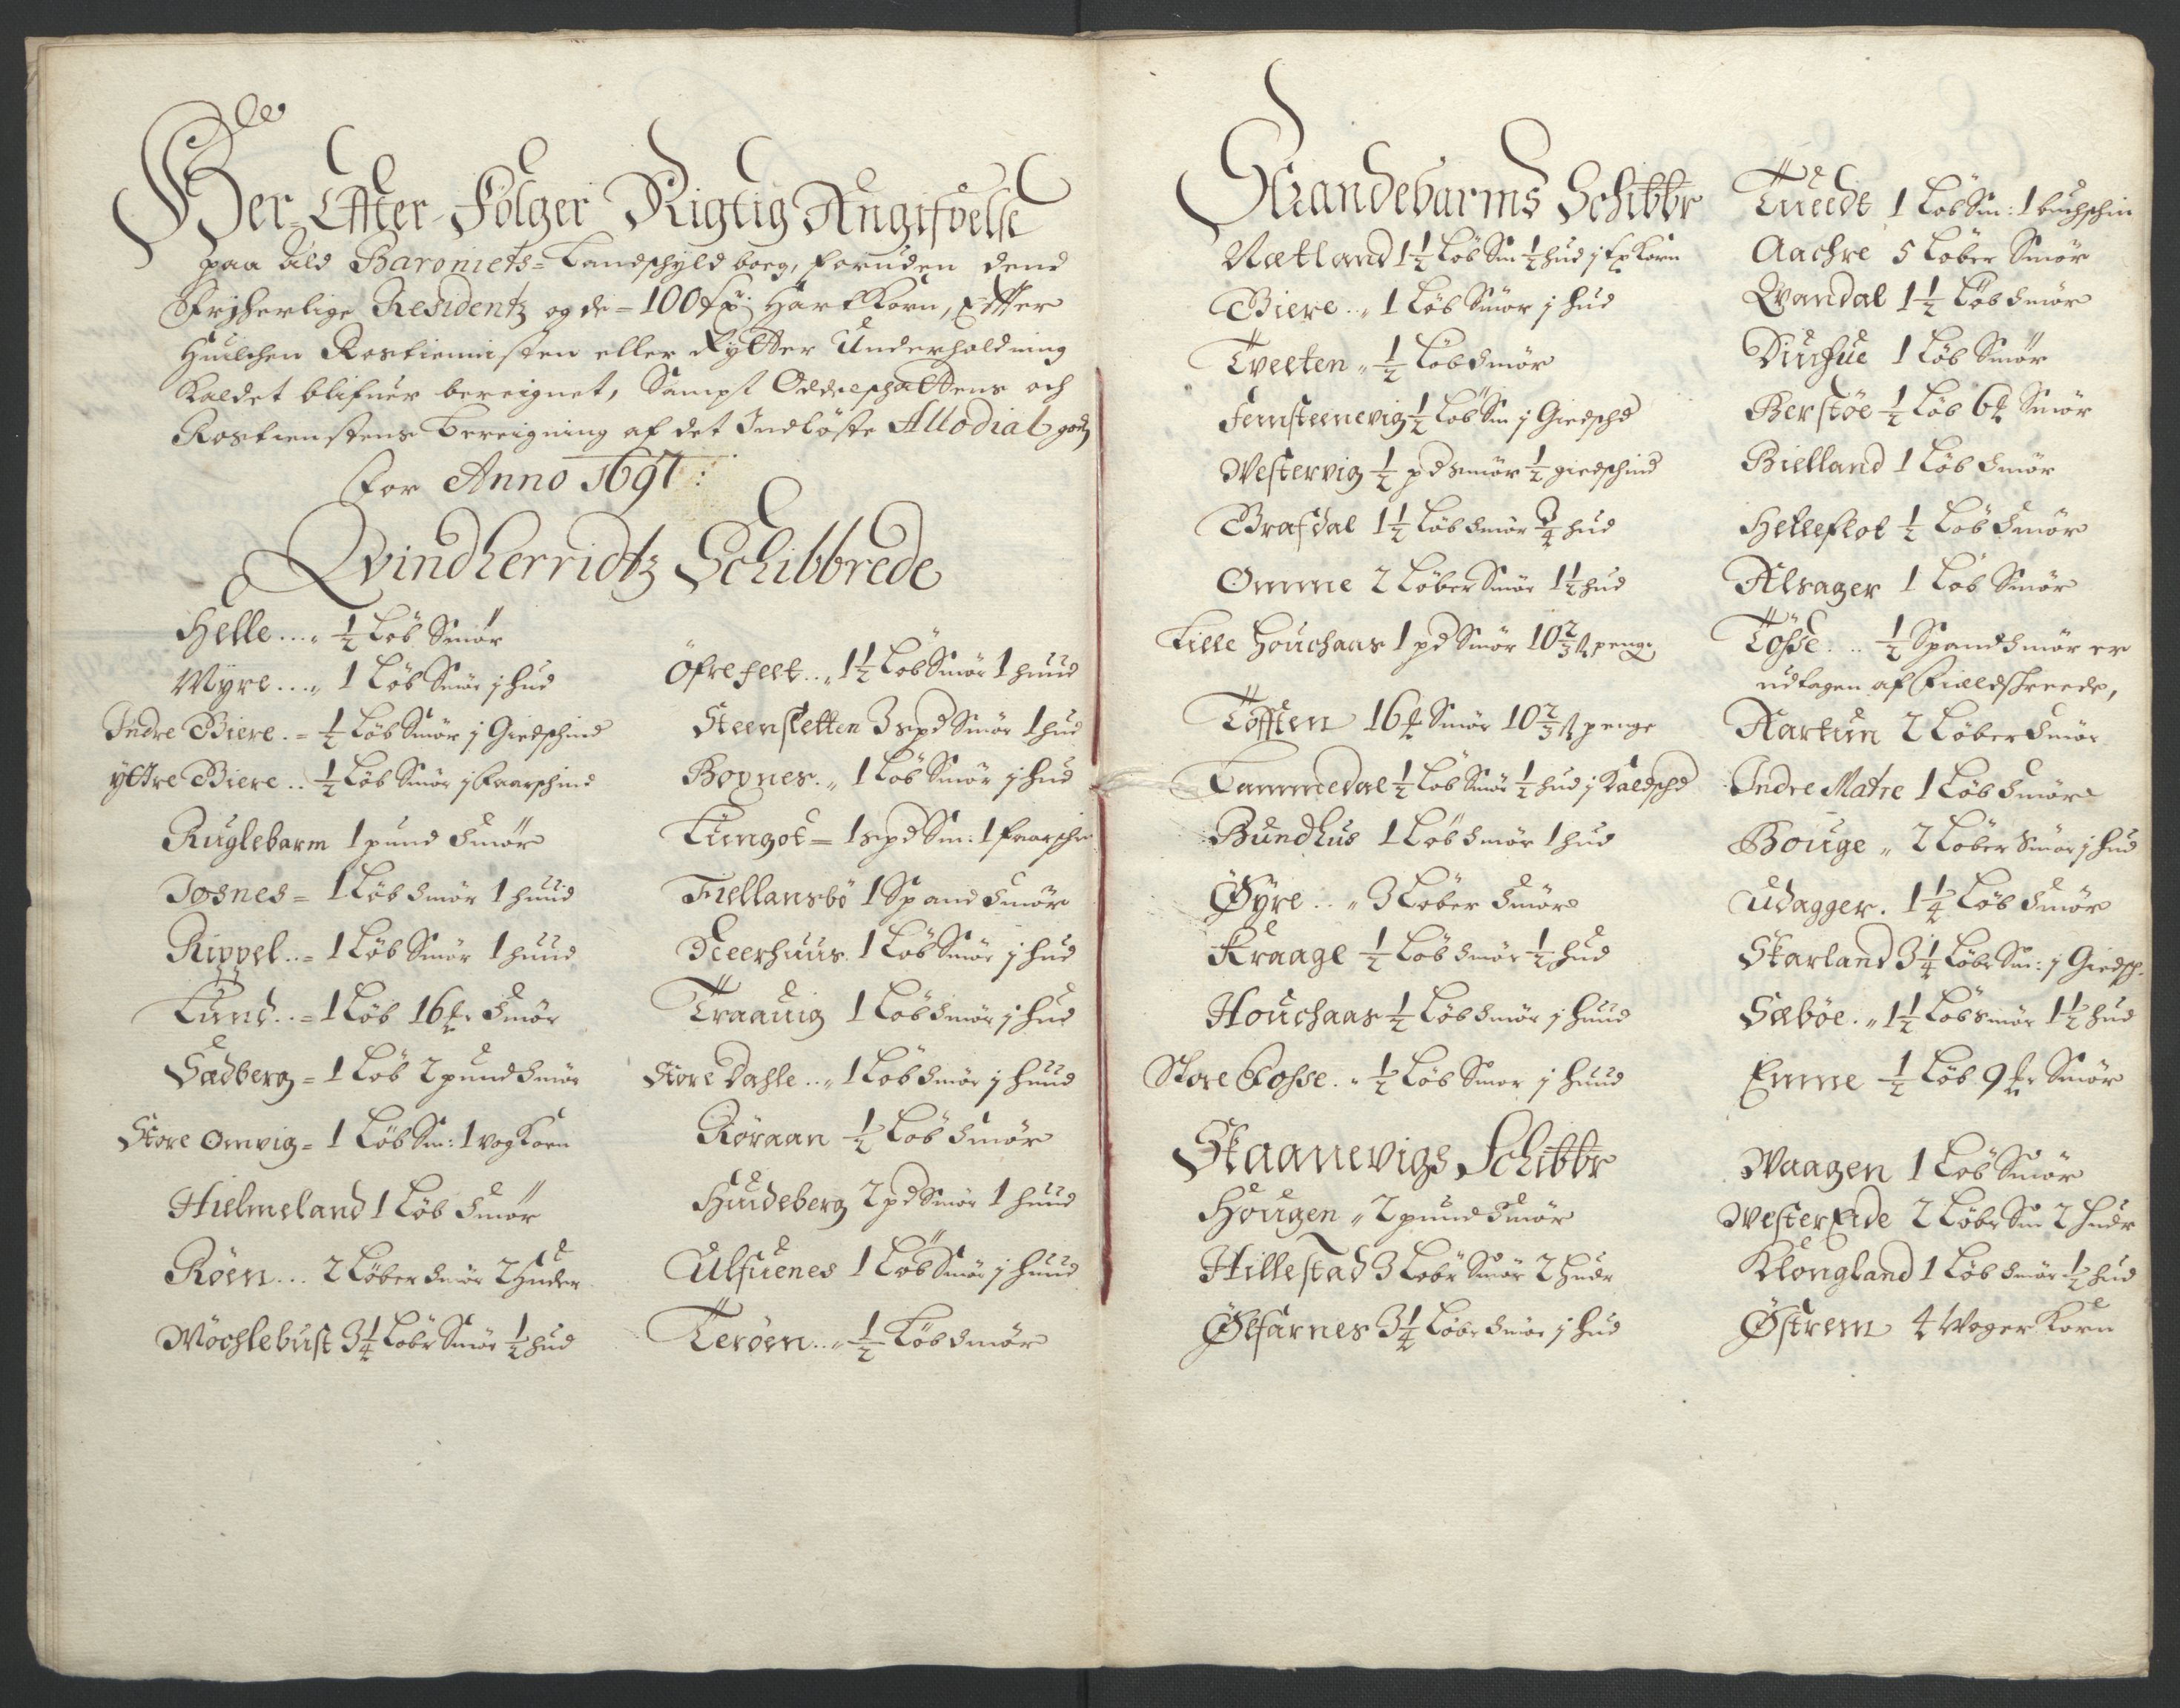 Her-Effter-Følger Rigtig Angifvelse
paa ald Baroniets-Landschyld boeg, foruden dend
Fryherlige Residentz og de-100 tr: Hart Korn, Effter
huilchen Rostienisten eller Rytter Underholdning
Kaldet blifuer bereignet, Sampt Oddelschattens och
Rostienstens bereigning af det Indløste Allodial godz
for Anno 1697:
Qvindherridtz Schibbrede
Helle... ½ Løb Smør
Myre... 1 Løb Smør j hud
Indre Biere.- ½ Løb Smør j Giedschind
yttre Biere.. ½ Løb Smør j faarschind
Ruglebarm 1 pund Smør
Josnes= 1 Løb Smør 1 huud
Rippel..= 1 Løb Smør 1 huud
Lund..= 1 Løb 16 mrk Smør
Sædberg= 1 Løb 2 pund Smør
Store Omvig= 1 Løb Sm: 1 vog Korn
Hielmeland 1 Løb Smør
Røen... 2 Løber Smør 2 Huder
Møchlebust 3¼ Løbr Smør ½ hud
Øfrefelt.. 1½ Løb Smør 1 huud
Steensletten 3 spd Smør 1 hud
Bopnes. 1 Løb Smør j hud
Lungot= 1 spd Sm: 1 faarschin
Fiellansbø 1 Spand Smør
Deerhuus. 1 Løb Smør j hud
Traavig 1 Løb Smør j hud
Store Dahle.. 1 Løb Smør j huud
Røraan ½ Løb Smør
Hudeberg 2 pd Smør 1 huud
Ulfuenes 1 Løb Smør j huud
Terøen.. ½ Løb Smør
Strandebarms Schibbr
Nætland 1½ Løb Sm ½ hud j Korn
Biere.. 1 Løb Smør j hud
Tveeten ½ Løb Smør
Femsteenevig ½ Løb Sm j Giedschd
Westervig ½ pd smør ½ giedschind
Brafdal 1½ Løb Smør ¾ hud
Omme 2 Løber Smør 1½ hud
Lille Houchaas 1 pd Smør 10⅔ ß penge
Tøfften 16 mrk Smør 10⅔ ß penge
Tammedal ½ Løb Smør ½ hud j Kaldschd
Bundhus 1 Løb Smør 1 hud
Øyre.. 3 Løber Smør
Kraage ½ Løb Smør ½ hud
Houchaas ½ Løb Smør j huud
Store Fosse. ½ Løb Smør j huud
Skaanevigs Schibbr
Hougen 2 pund Smør
Hillestad 3 Løbr Smør 2 hudr
Ølfarnes 3¼ Løbr Smør j hud
Tuedt 1 Løb Sm: 1 buchschin
Aachre 5 Løber Smør
Qvandal 1½ Løb Smør
Diuchue 1 Løb Smør
Berstøe ½ Løb 6 mrk Smør
Bielland 1 Løb Smør
Helleflot ½ Løb Smør
Alsager 1 Løb Smør
Tøsse... ½ Spand Smør er
udtagen af Fieldskreede,
Aartun 2 Løber Smør
Indre Matre 1 Løb Smør
Bouge 2 Løber Smør j hud
Udagger. 1¼ Løb Smør
Skarland 3¼ Løbr Sm: j Giedsch.
Sæbøe. 1½ Løb smør 1½ hud
Emme ½ Løb 9 mrk Smør
Waagen 1 Løb Smør
Wester Eide 2 Løbr Sm 2 hudr
Klongland 1 Løb Smør ½ hud
Østrem 4 Woger Korn